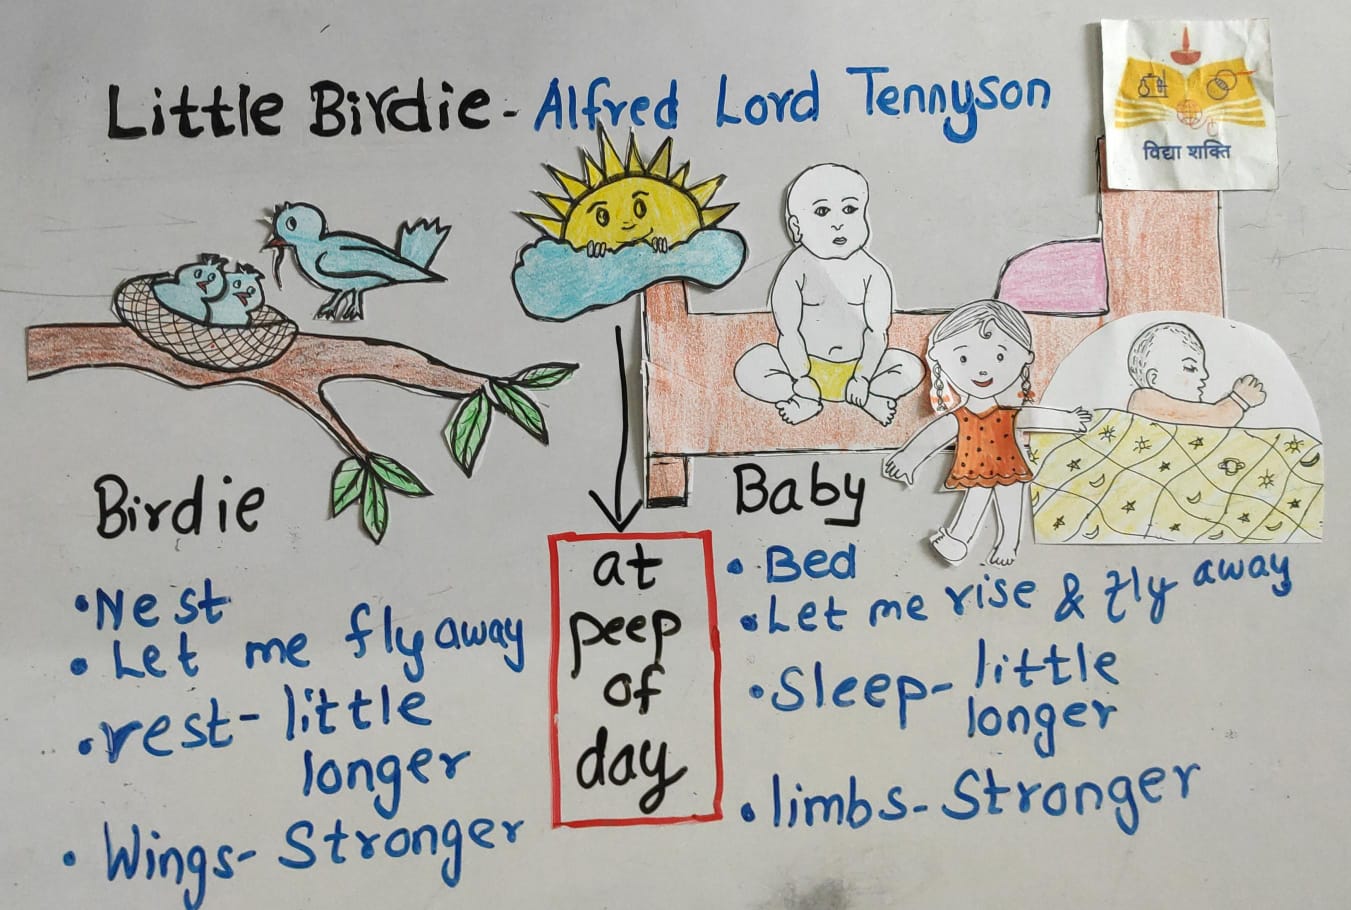 Little Birdie - Alfred Lord Tennyson
विद्या शक्ति
Birdie
• Nest
• Let me fly away
• rest - little
longer
• Wings - Stronger
at
peep
of
day
Baby
• Bed
• Let me rise & fly away
• Sleep - little
longer
• limbs - Stronger